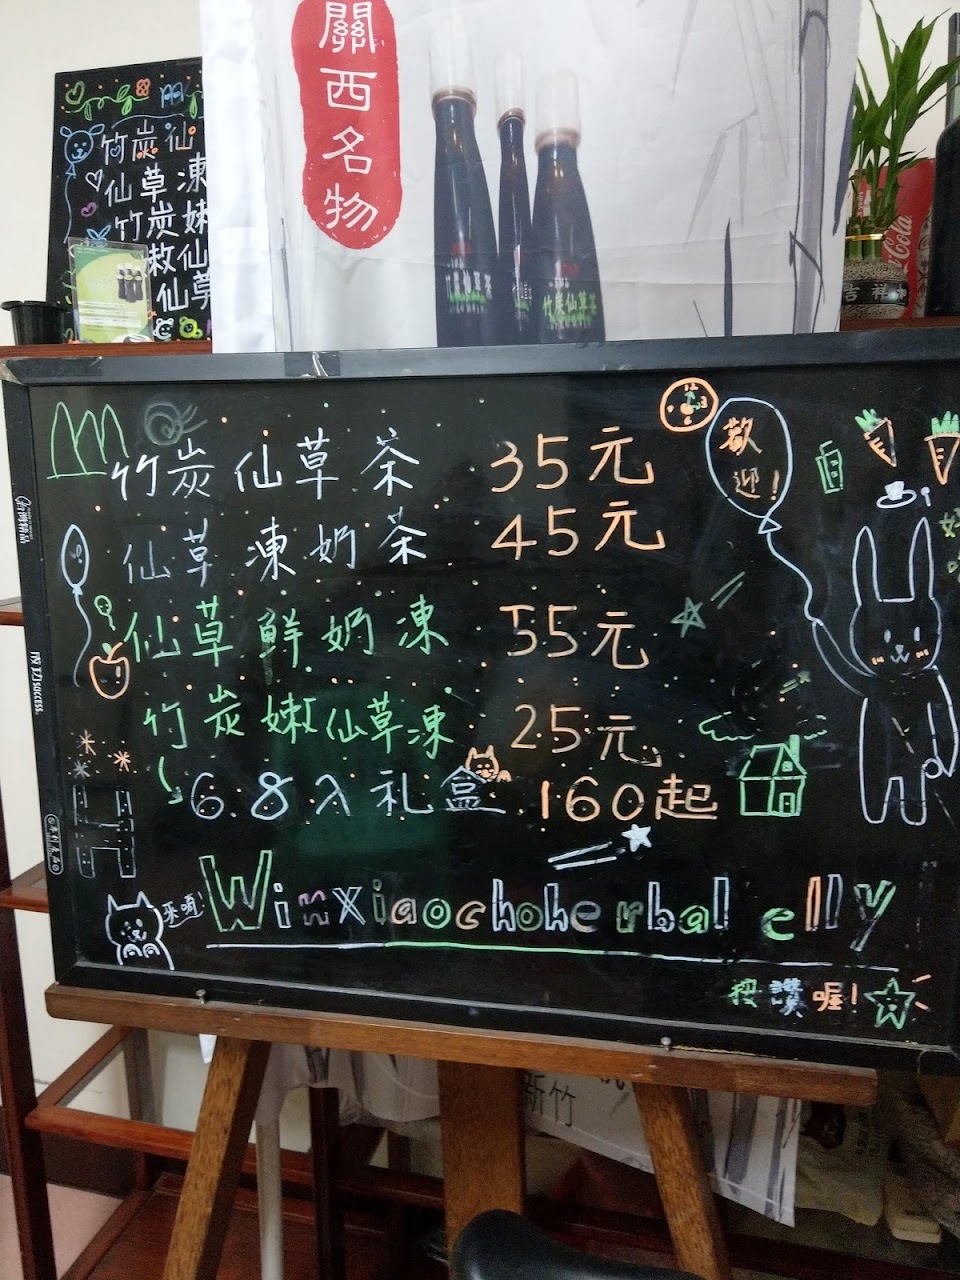 關西名物
竹炭仙
仙草凍
竹炭嫩
嫩仙
仙草
竹炭仙草茶
Cola
吉祥
竹炭仙草茶 35元
仙草凍奶茶 45元
仙草鮮奶凍 55元
竹炭嫩仙草凍 25元
6.8入礼盒 160起
歡迎!
SUCCESS
來唷!
Winxiaochoherbal elly
按讚喔!
新竹